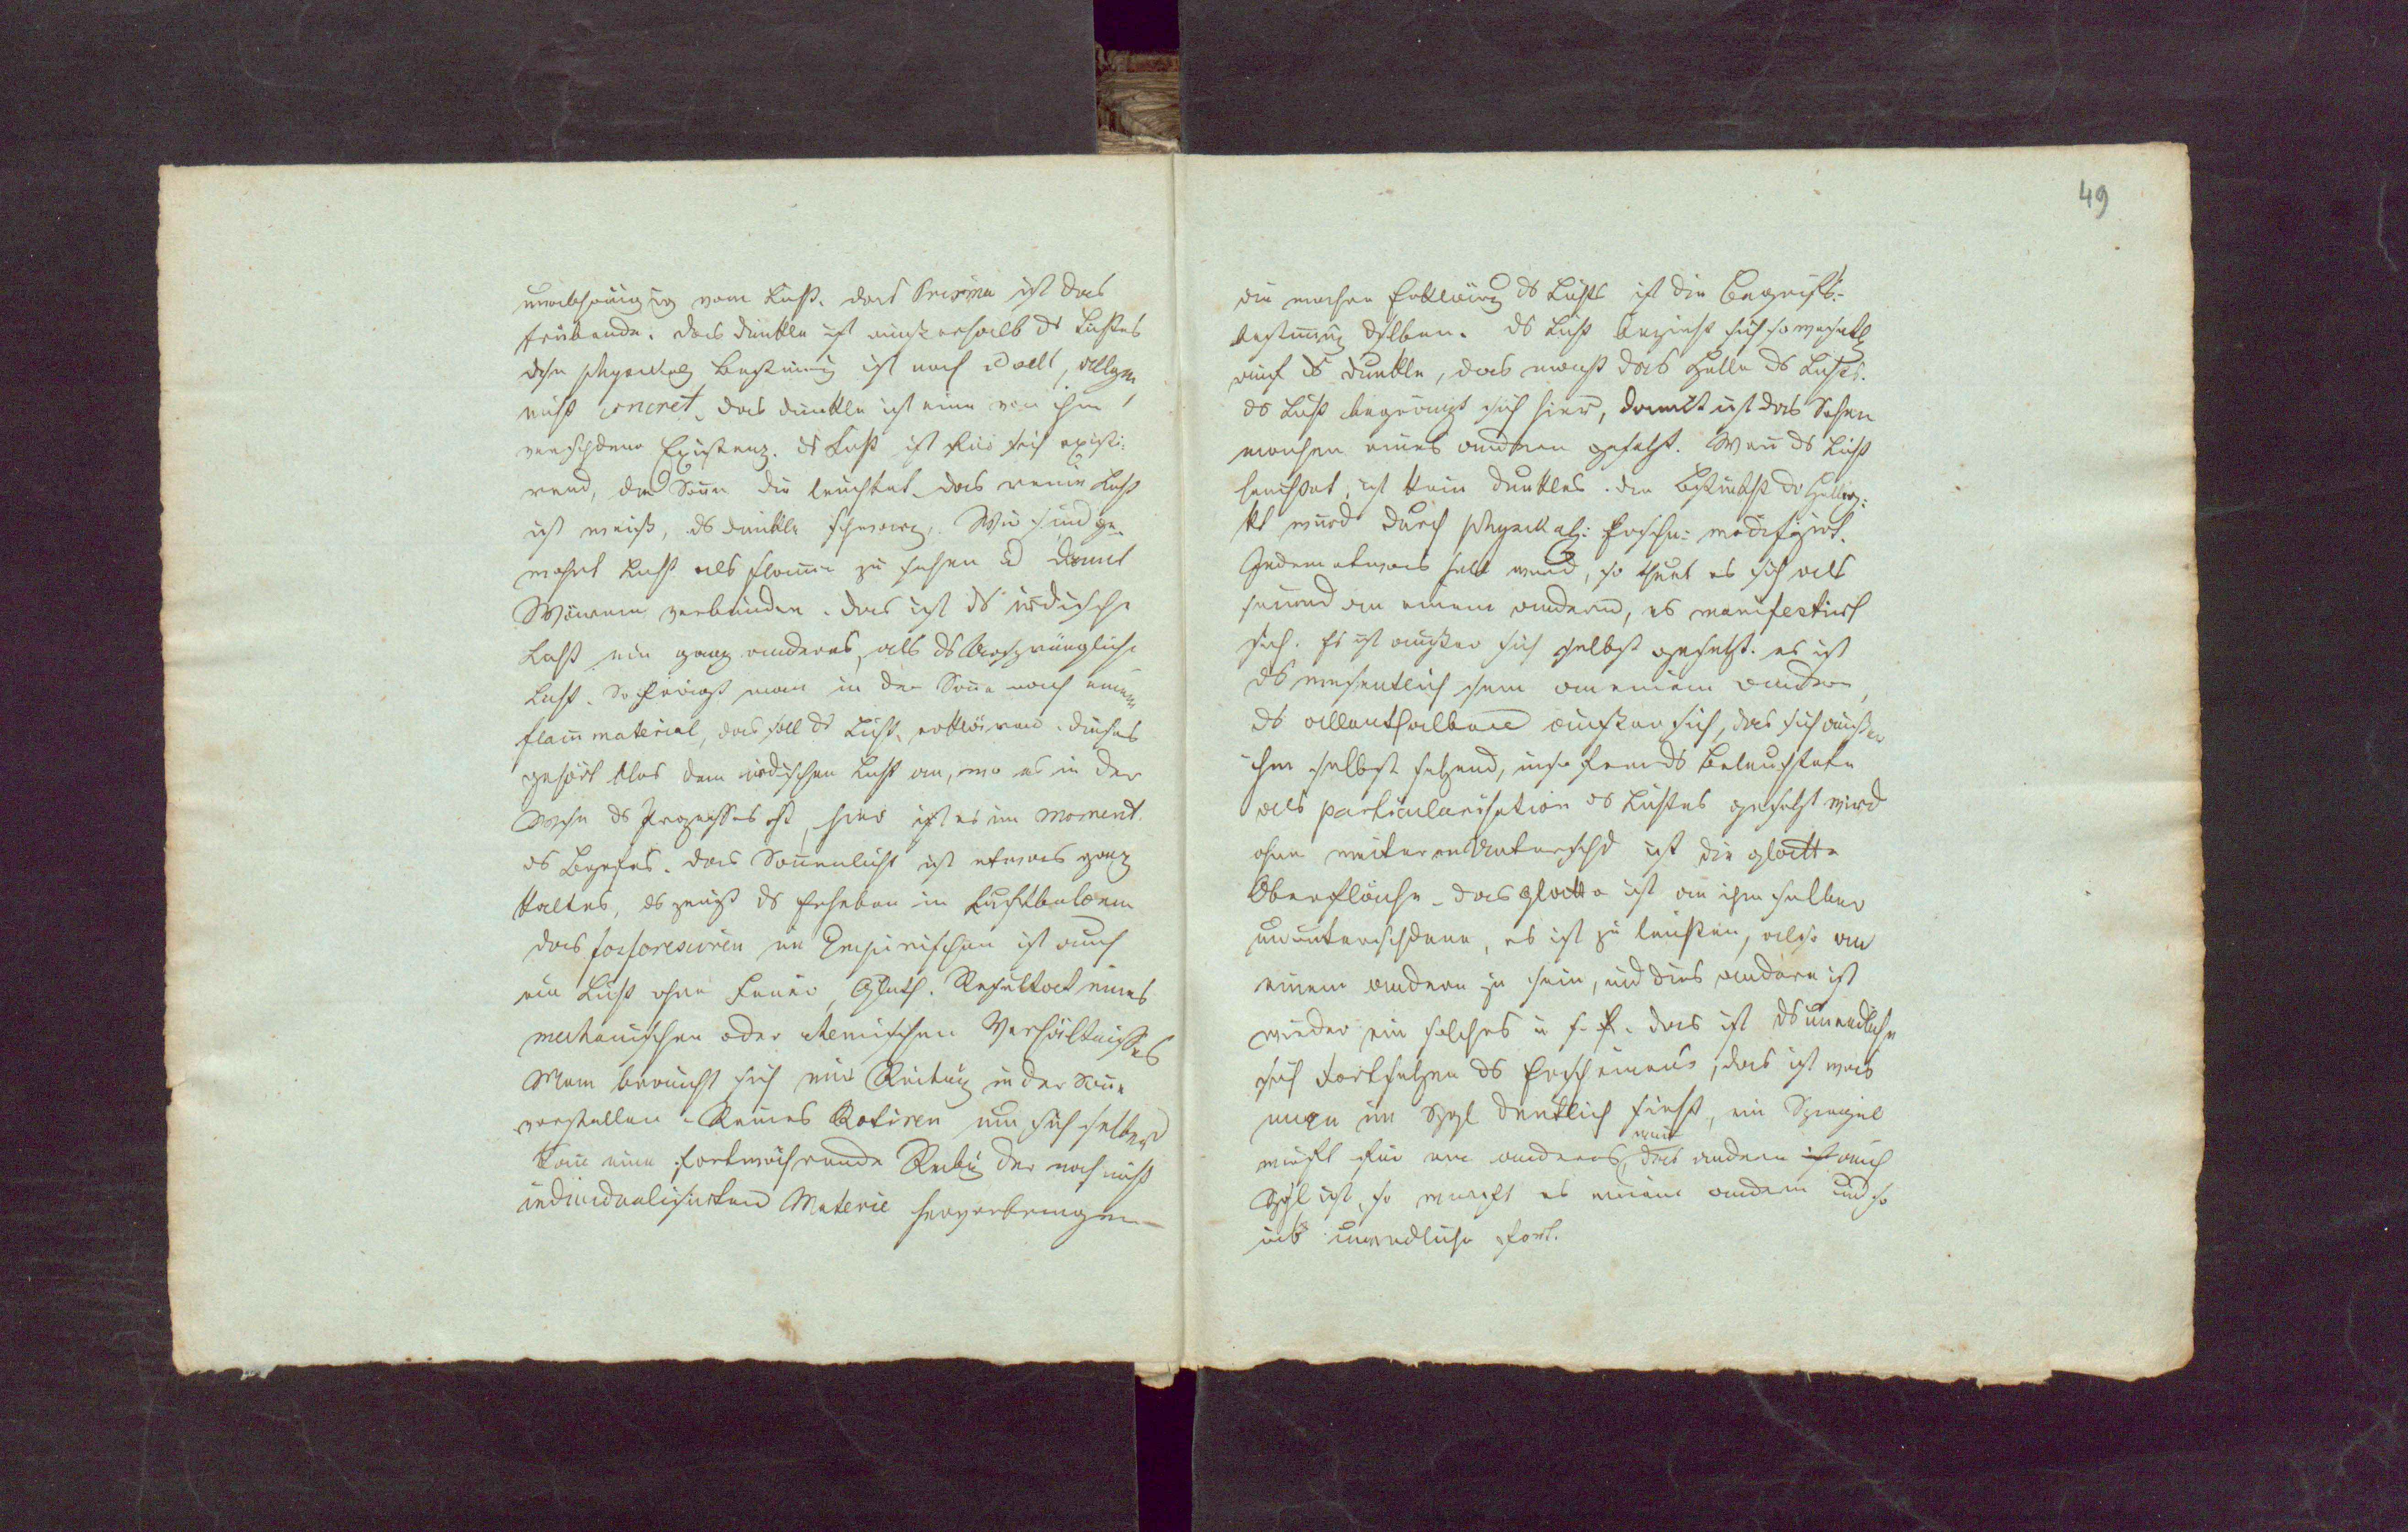 unabhängig vom Licht. das Prisma ist das
trübende. das dunkle ist ausserhalb ds Lichtes
dse physikal Bestimmung ist noch ideell, allgem,
nicht concret, das dunkle ist eine von ihm
verschdene Existenz. ds Licht ist für sich existi-
rend, die Sonne die leuchtet. das reine Licht
ist weiß, ds dunkle schwarz. Wir sind ge-
wohnt Licht als Flamme zu sehen u damit
Wärme verbunden. das ist ds irdische
Licht ein ganz anderes, als ds Ursprüngliche
Licht. So frägt man in der Sonne nach einem
flammaterial, das soll ds Licht erklären. dieses
gehört blos dem irdischen Licht an, wo es in der
Weise ds Prozesses ist, hier ist es im Moment
ds Begrifes. das Sonnenlicht ist etwas ganz
kaltes, es zeugt ds Erheben in Luftbaloen
das fosforesciren im Empirischen ist auch
ein Licht ohne Feuer, Gluth. Resultat eines
mechanischen oder chemischen Verhältnisses
Man braucht sich eine Reibung in der Sonne
vorstellen. Reines Rotiren um sich selber
kann eine fortwährende Reibung der noch nicht
individualisirten Materie hervorbringen
49
die wahre Erklärung ds Lichts ist die Begriffs-
bestimmung dselben. ds Licht bezieht sich so wesentl
auf ds dunkle, das macht das Helle ds Lichts.
ds Licht begränzt sich hier, damit ist das Sehen
machen eines anderen gesetzt. Wenn ds Licht
leuchtet, ist kein dunkles. die Bestimmtht der Hellig-
kt wird durch physikal: Ersche: modifizirt.
Indem etwas hell wird, so thut es sich als
seiend an einem andern, es manifestirt
sich. Es ist außer sich selbst gesetzt. es ist
ds wesentlich sein an einem andern,
ds allenthalben außer sich, das sich außer
ihm selbst setzend, insofern ds Beleuchtete
als particularisation ds Lichtes gesetzt wird
ohne weiteren Unterschd ist die glatte
Oberfläche. das glatte ist an ihm selber
ununterschdene, es ist zu leuchten, also an
einem andern zu sein, und dies andere ist
wieder ein solches u. s. f. das ist ds unendliche
sich Fortsetzen ds Erscheinens, das ist was
man im Spgl deutlich sieht, ein Spiegel
wirft für ein anderes, wenn das andere auch
Spgl ist, so wirft es einem andern und so
ins unendliche fort.